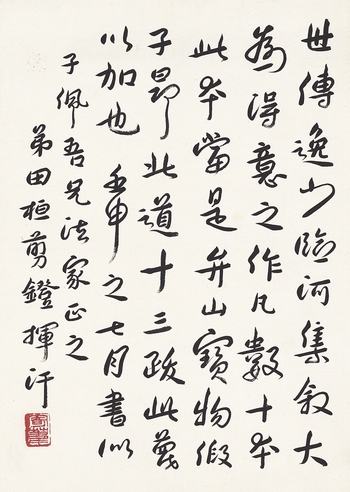 世傳逸少臨河集敘大
為得意之作凡數十本
此本當是弁山寶物假
子昂北道十三跋此蔑
以加也 壬申之七月書似
子佩吾兄法家正之
弟田桓剪鐙揮汗